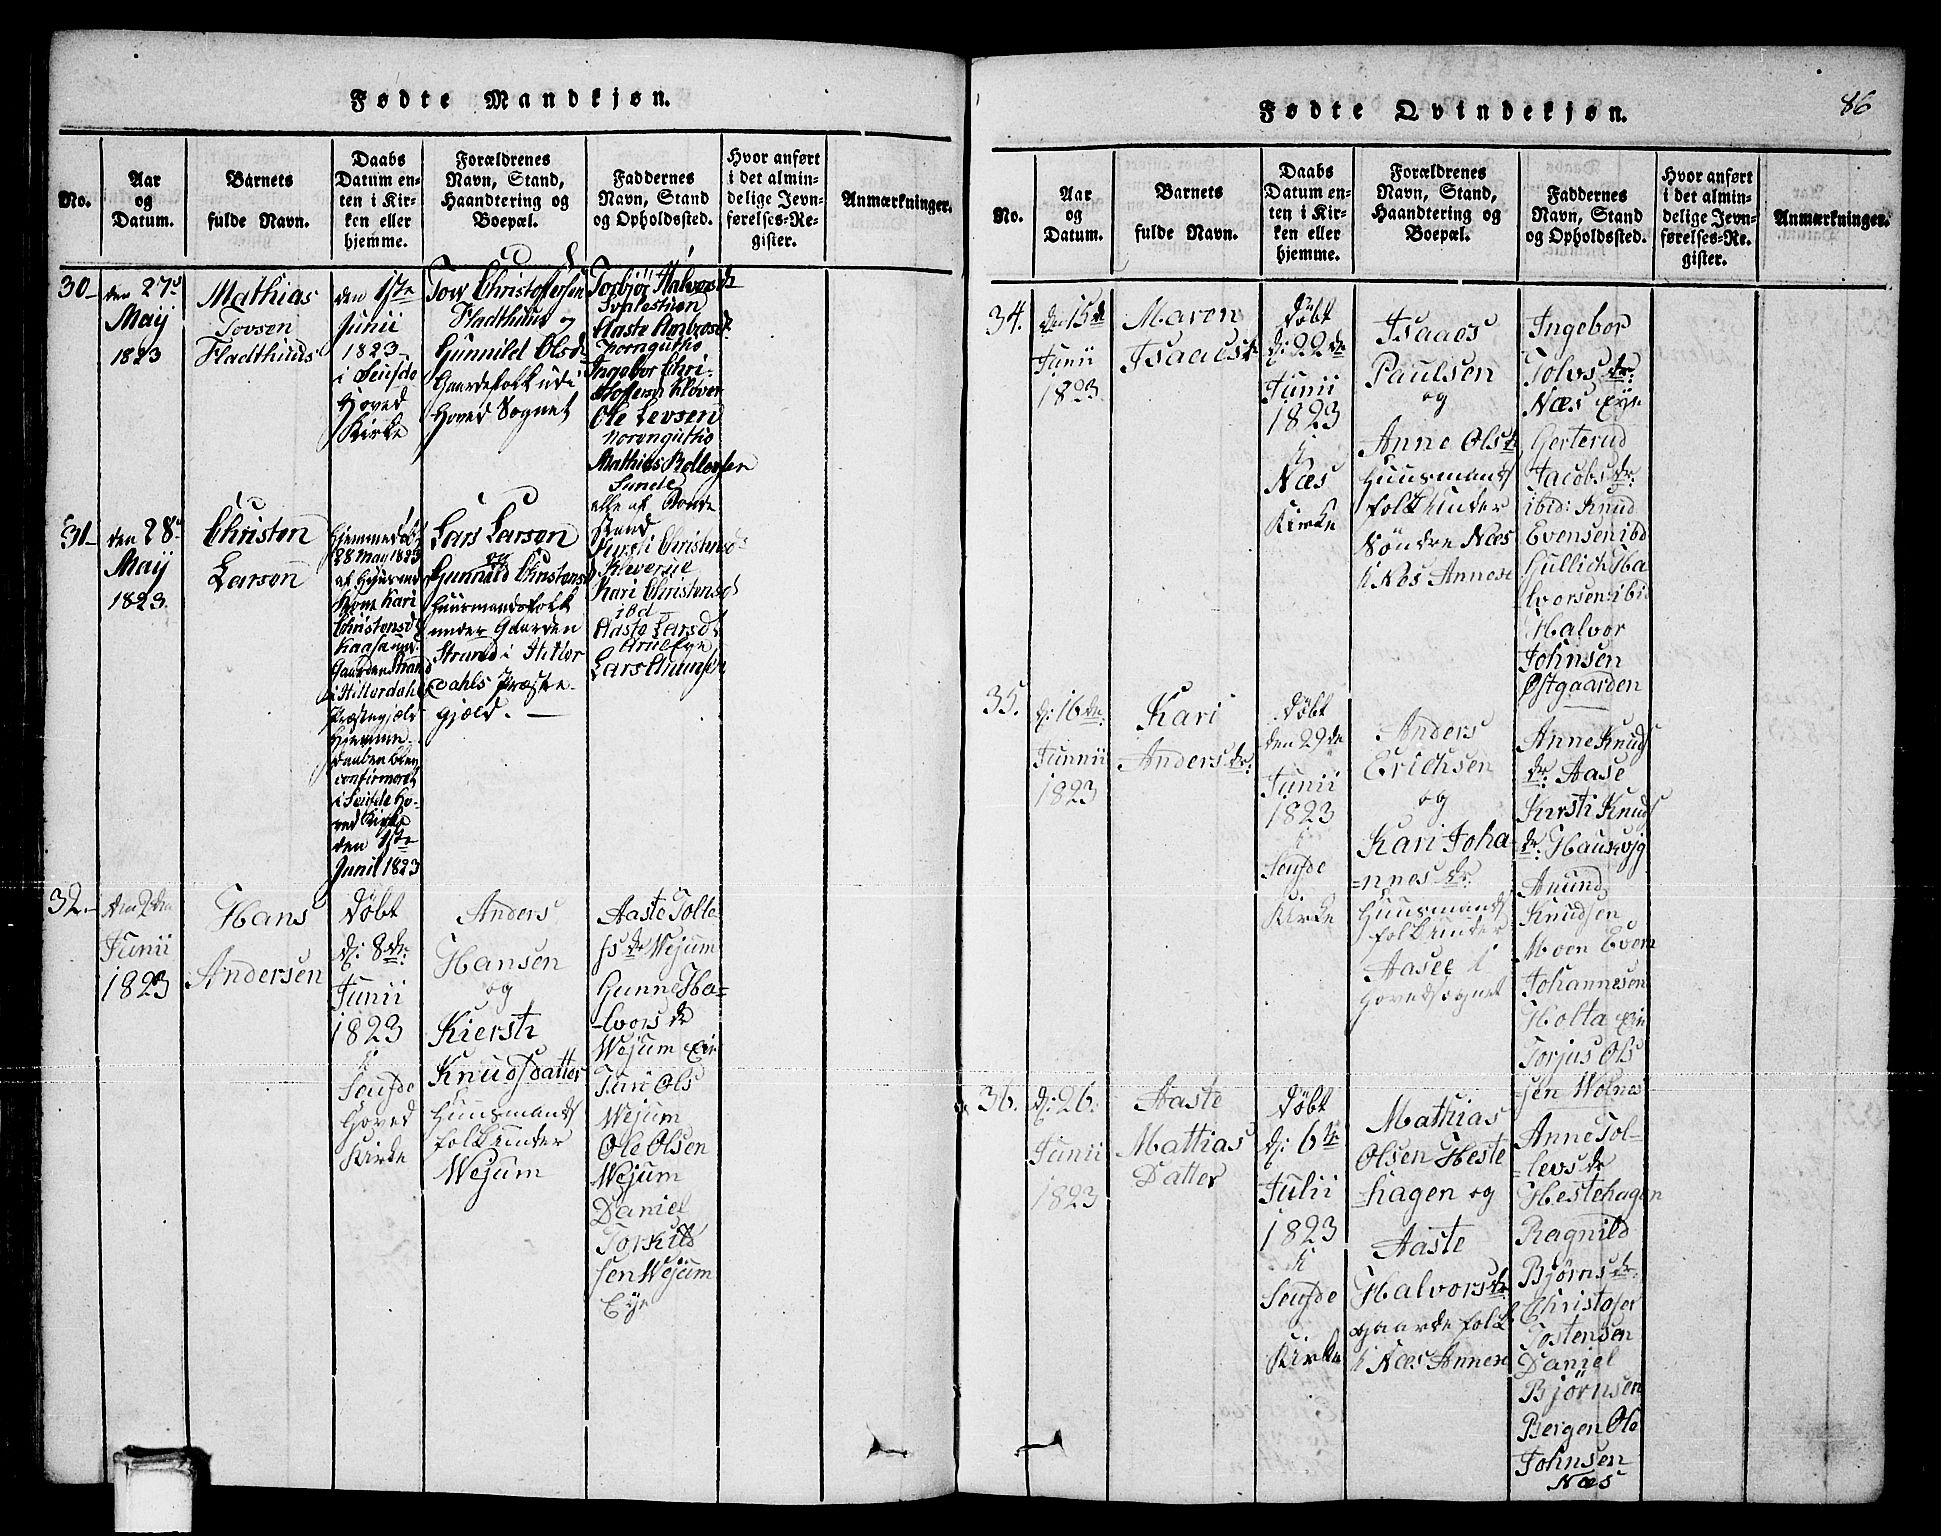 Fødte Mandkjøn.
No.
Aar
og
Datum.
Barnets
fulde Navn.
Daabs
Datum en-
ten i Kir-
ken eller
hjemme.
Forældrenes
Navn, Stand,
Haandtering og
Boepæl.
Faddernes
Navn, Stand
og Opholdssted.
Hvor anført
i det almin-
delige Jevn-
førelses-Re-
gister.
Anmærkninger.
30
den 27d
Maij
1823
Mathias
Tovsen
Fladthuus
den 1ste
Junii
1823
i Seufde
Hoved
Kirke
Tov Christoffersen
Fladthuus og
Gunnild Olsd
Gaardefolk udi
Hoved Sognet
Torbjør Halvorsd
Aaste Ambrosd
Ingebor Chri-
stoffersd Klover
Ole Levsen
Mathias Rollevsen
Sunde
alle af Bonde
stand
31
den 28
Maij
1823
Christen
Larson
Hjemmedøbt
28 May 1823
af Huusmands
Kone Kari
Christensd
Kaasa under
Gaarden Strand
i Hitterdahl
Præstegjæld
Hjemme-
daaben blev
confirmeret
i Seufde Ho-
ved Kirke
den 1ste
Junii 1823
Lars Larson
og
Gunnild Christensd
Huusmandsfolk
under Gaarden
Strand i Hitter
dahls Præste-
gjæld. —
Kirsti Christensd
Kleverue
Kari Christensd
ibd
Aaste Larsd
Lars Amunsen
32.
den 2den
Junii
1823
Hans
Andersen
Døbt
d: 8de
Junii
1823
i
Seufde
Hoved
Kirke
Anders
Hansen
og
Kiersti
Knudsdatter
Huusmands
folk under
Wejum
Aaste Tolle
fs dr Wejum
Gunne Ha=
=lvors dr
Wejum Eie
Juri Ols
Wejum
Ole Olsen
Wejum
Daniel
Torkild
sen Wejum
Eye
86
Fødte Qvindekjøn.
No.
Aar
og
Datum.
Barnets
fulde Navn.
Daabs
Datum en-
ten i Kir-
ken eller
hjemme.
Forældrenes
Navn, Stand,
Haandtering og
Boepæl.
Faddernes
Navn, Stand
og Opholdssted.
Hvor anført
i det almin-
delige Jevn-
førelses-Re-
gister.
Anmærkninger.
34.
den 15de
Junii
1823
Maren
Isaacsdr
Døbt
d: 22de
Junii
1823
i
Næs
Kirke
Isaacs
Paulsen
og
Anne Olsdr
Huusmands
folk under
Søndre Næs
i Nes Annese
Ingebor
Tolvs dr:
Næs Eye
Gerterud
Jacobs dr:
ibid: Knud
Evensen ibd
Gullich Ha
lvorsen: ibid
Halvor
Johnsen
Østgaarden
35.
d: 16de
Junnii
1823
Kari
Anders dr:
Døbt
den 29de
Junii
1823
i
Seufde
Kirke
Anders
Erichsen
og
Kari Joha
=nnes dr:
Huusmands
folk under
Aasee i
Hovedsognet
Anne Knuds
dr: Aase
Kirsti Knuds
dr: Haugvig
Amund
Knudsen
Moen Even
Johannesen
Holta Eie
Torjus Ols
sen Wolnes
36.
d: 26.
Junii
1823
Aaste
Mathias
Datter
Døbt
d: 6te
Julii
1823
i
Seufde
Kirke
Mathias
Olsen Heste
=hagen og
Aaste
Halvorsdr
gaarde folk
i Næs Annese
Anne Tol-
=levs dr
Hestehagen
Ragnild
Bjørns dr:
Christofer
Tostensen
Daniel
Bjørnsen
Bergen Ole
Johnsen
Næs